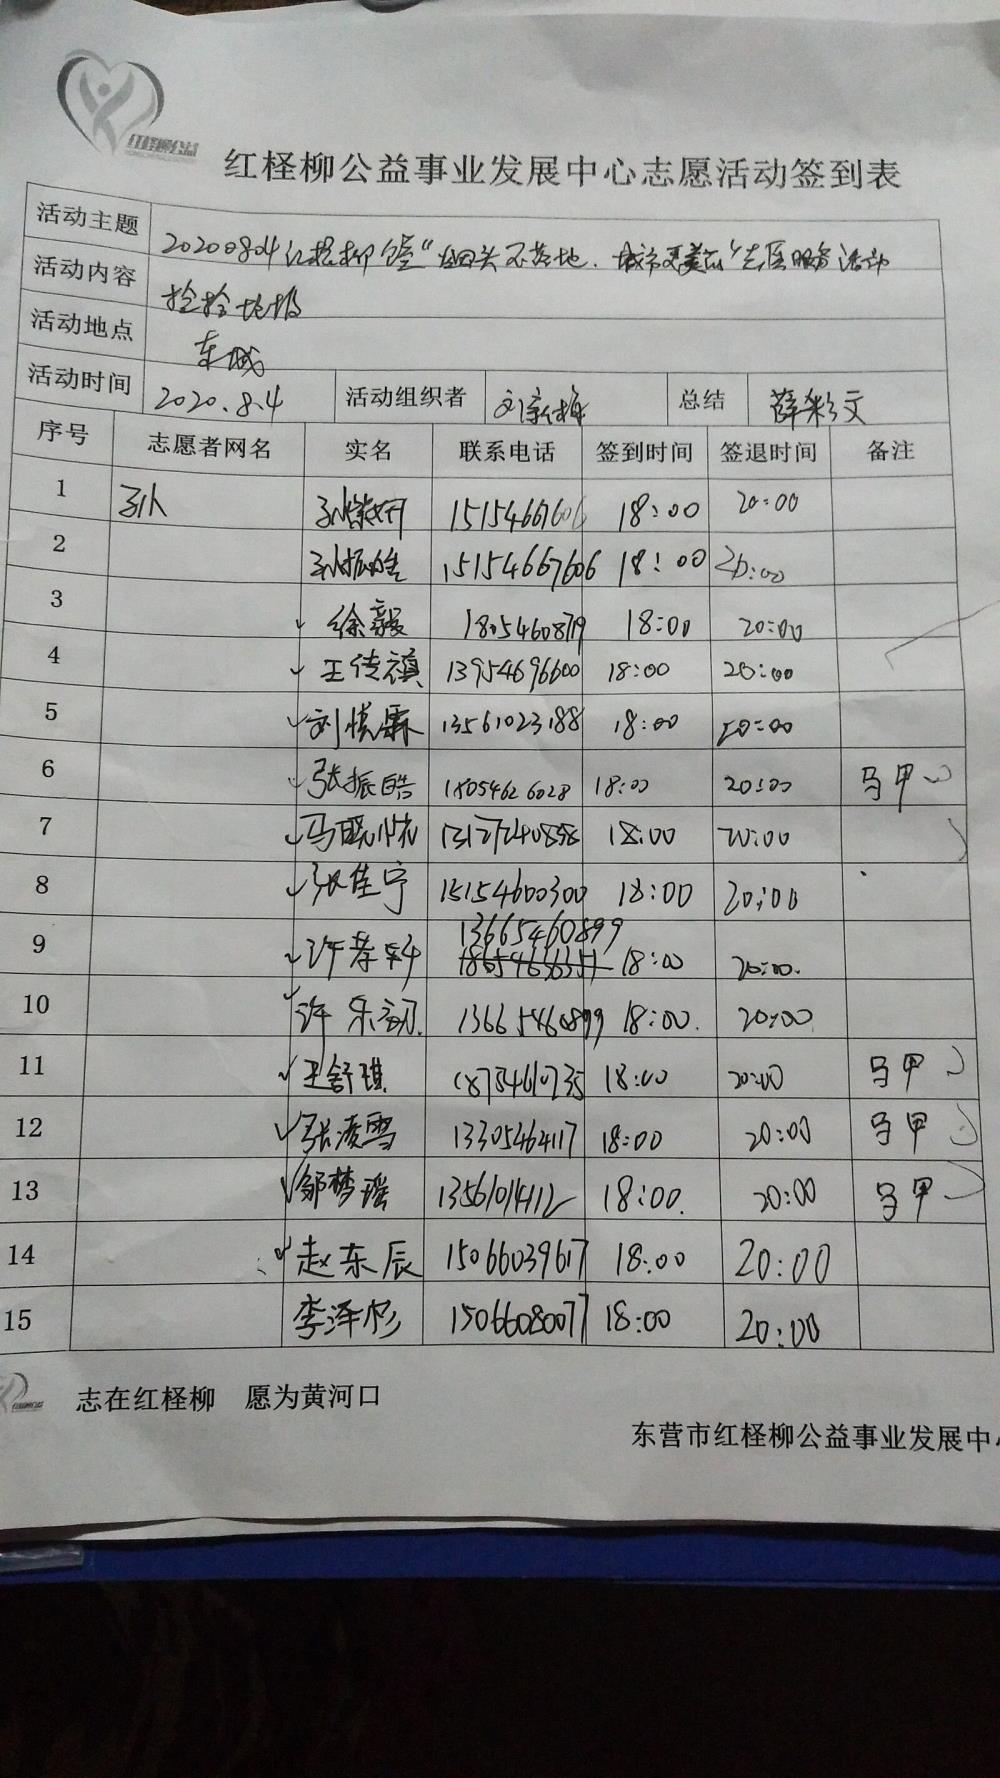 红柽柳公益
红柽柳公益事业发展中心志愿活动签到表
活动主题 20200804红柽柳 "烟头不落地.城市更美丽"志愿服务活动
活动内容 捡拾垃圾
活动地点 东城
活动时间 2020.8.4 活动组织者 总结 薛彩文
序号 志愿者网名 实名 联系电话 签到时间 签退时间 备注
1 15154667606 18:00 20:00
2 15154667606 18:00 20:00
3 徐毅 18054608719 18:00 20:00
4 王传祺 13954696600 18:00 20:00
5 刘慎霖 13561023188 18:00 20:00
6 张振皓 18054626028 18:00 20:00 马甲
7 马晓 13127240858 18:00 20:00
8 张佳宁 15154600300 18:00 20:00
13665460899
9 许 18:00 20:00.
10 许乐 13665460899 18:00. 20:00
11 王舒琪 18:00 20:00 马甲
12 张凌雪 13305464117 18:00 20:00 马甲
13 邹梦瑶 13561014112 18:00. 20:00 马甲
14 赵东辰 15066039617 18:00 20:00
15 李泽杉 15066080077 18:00 20:00
志在红柽柳 愿为黄河口
东营市红柽柳公益事业发展中